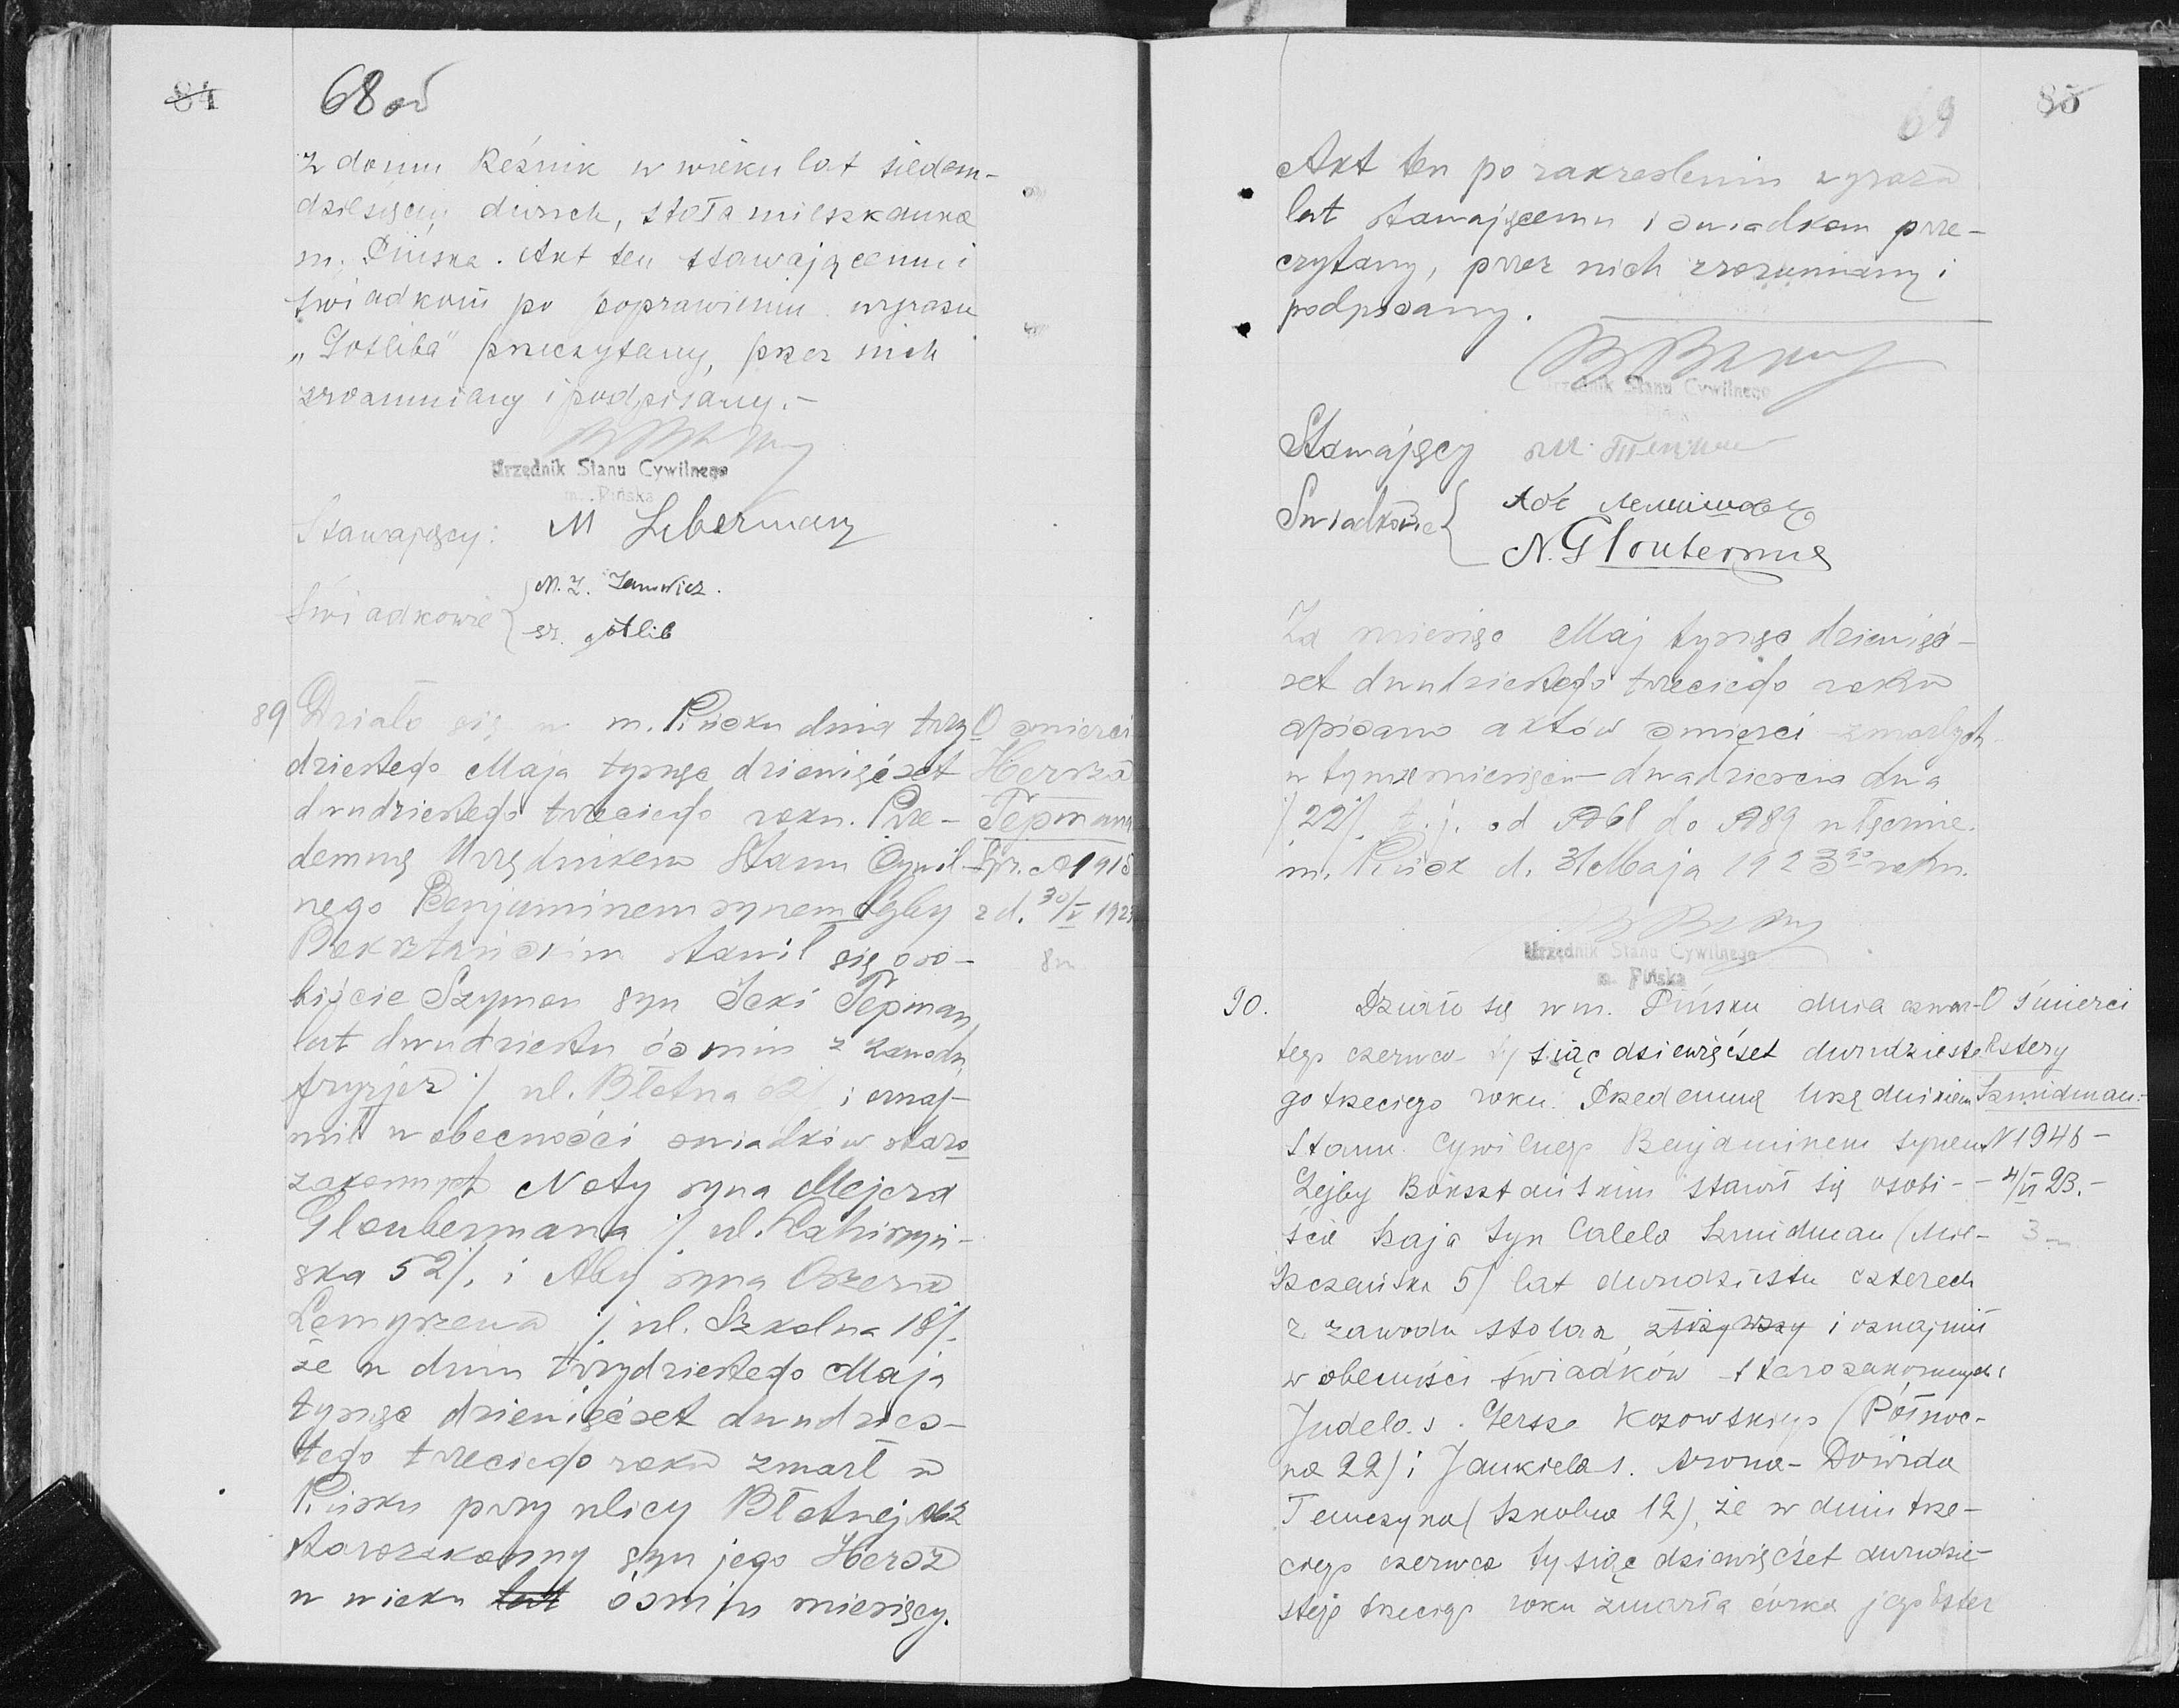 84
68 об
z domu Reźnik w wieku lat siedem-
dziesięciu dwuch, stała mieszkanka
m. Pińska. Akt ten stawającemu i
świadkom po poprawieniu wyrazu
„Gotliba" przeczytany, przez nich
zrozumiany i podpisany.-
Urzędnik Stanu Cywilnego
m. Pińska
Stawający: M Liberman
Świadkowie
gotlib
89 Działo się w m. Pińsku dnia trzy
dziestego Maja tysiąc dziewięćset
dwudziestego trzeciego roku. Prze-
demną Urzędnikem Stanu Cywil-
nego Benjaminem synem Lejby
Boksztańskim stawił się oso-
biście Szymon syn Icki Tepman,
lat dwudziestu ósmiu z zawodu
fryzjer /. ul. Błotna 62 i oznaj-
mił w obecności świadków staro
zakonnych Noty syna Mejera
Gloubermana /. ul.
ska 52/. i Aby syna
/. ul. Szkolna 18/.
że w dniu trzydziestego Maja
tysiąc dziewięćset dwudzies-
tego trzeciego roku zmarł w
Pińsku przy ulicy Błotnej №62
starozakonny syn jego Hersz
w wieku lat ósmiu miesięcy.
O śmierci
Hersza
Tepmana
Spr. №1918
z d. 30/V 1923
8 m
85
69
Akt ten po zakreśleniu wyraza
lat stawającemu i świadkom prze-
czytany, przez nich zrozumiany i
podpisany.
Urzędnik Stanu Cywilnego
Stawający
Świadkowie
N. Glouberman
Za miesiąc Maj tysiąc dziewięć-
set dwudziestego trzeciego roku
spisano aktów śmierci zmarłych
w tymże miesiącu dwadzieścia dwa
/22/. t.j. od №68 do №89 włącznie.
m. Pińsk d. 31 Maja 1923 go roku.
Urzędnik Stanu Cywilnego
m. Pińska
90. Działo się w m. Pińsku dnia czwar-
tego czerwca tysiąc dziewięćset dwudzieste
go trzeciego roku. Przedemną Urzędnikiem
Stanu Cywilnego Benjaminem synem
Lejby Boksztańskim stawił się osobi-
ście Szaja syn Calela Szmidman (
5) lat dwudziestu czterech
z zawodu stolarz, i oznajmił
w obecności świadków starozakonnych:
Judela s. Gersza Kozowskiego (Północ-
na 22) i Jankiela s. Arona-Dowida
Temczyna (Szkolna 12), że w dniu trze-
ciego czerwca tysiąc dziewięćset dwudzie-
stego trzeciego roku zmarła córka jego Ester
O śmierci
Estery
Szmidman.
N 1946 -
- 4/VI 23.-
3 m